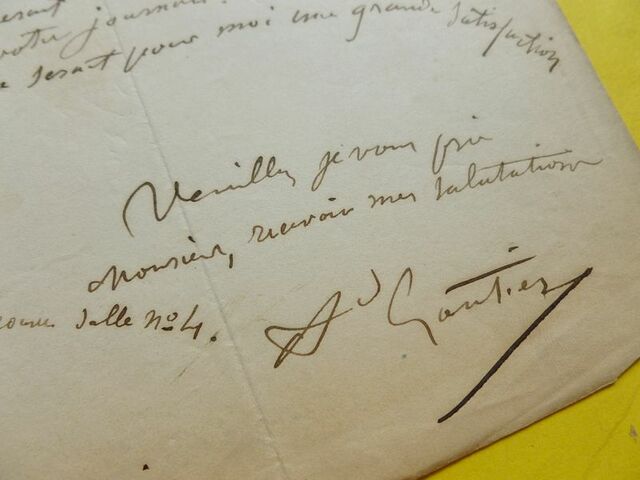 votre journal.
serait pour moi une grande satisfaction
Veuillez je vous prie
Monsieur, recevoir mes salutations
Salle No 4.
Ad Gautier